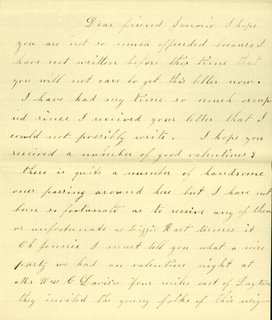 Dear friend Jennie I hope
you are not so much offended because I
have not written before this time that
you will not care to get this letter now.
I have had my time so much occup
ied since I received your letter that I
could not possibly write. I hope you
received a number of good valentines &
there is quite a number of handsome
ones passing around here but I have not
been so fortunate as to receive any of them
or unfortunate as Hart deems it
Oh Jennie I must tell you what a nice
party we had on valentine night at
Mr Wm C Davises four miles east of Dayton
they invited the young folks of this neig-